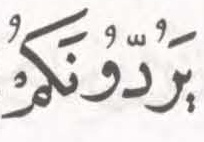 يَرُدُّونَكُمْ